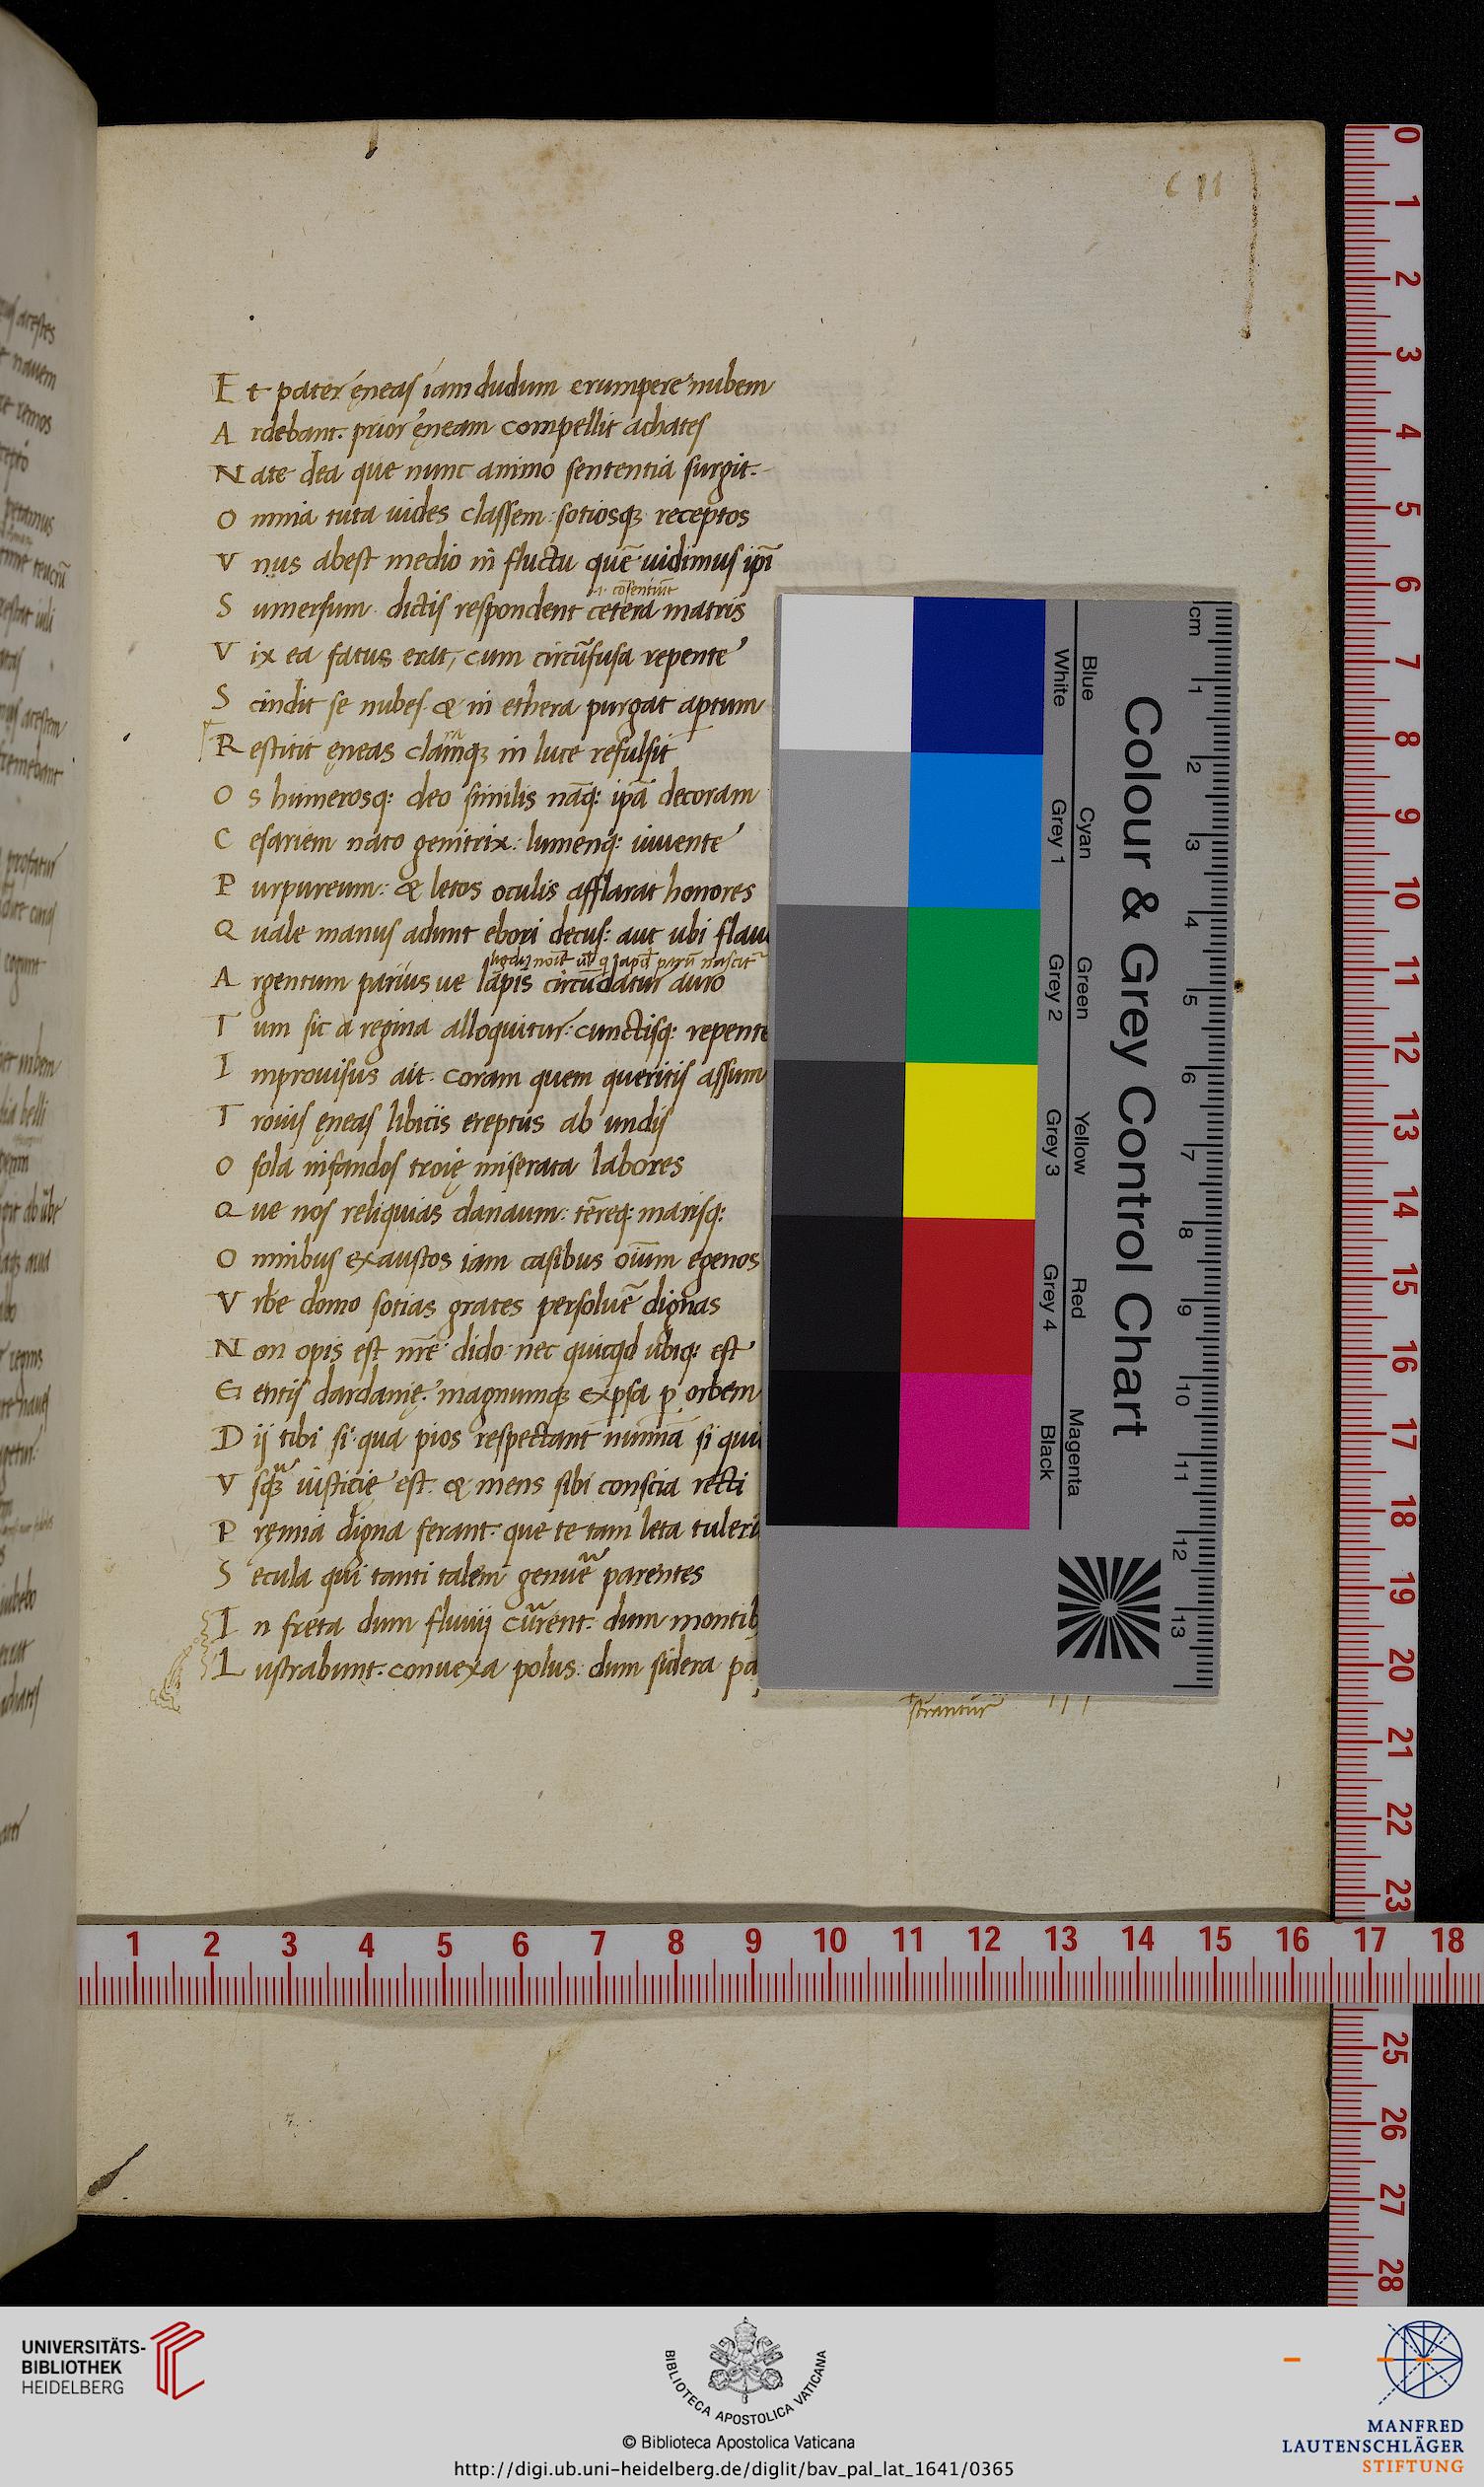 E t pater ęneas iam dudum erumpere nubem
A rdebant. prior ęneam compellit achates
N ate dea que nunc animo sententia surgit.
O mnia tuta uides classem: sotiosqȝ receptos
V nus abest medio in fluctu quē uidimus ipī
.i. cōsentiūt
S umersum. dictis respondent cetera matris
V ix ea fatus erat, cum circūfusa repente
S cindit se nubes. & in ethera purgat aptum
R estitit ęneas clamqȝ in luce refulsit
ra
O s humerosq: deo similis nāq: ipā decoram
C esariem nato genitrix: lumenq: iuuente
P urpureum: & letos oculis afflarat honores
Q uale manus adunt ebori decus: aut ubi flau
A rgentum parius ue lapis circūdatur auro
T um sic a regina alloquitur: cunctisq: repente
I mprouisus ait. coram quem queritis assum
T roius ęneas libicis ereptus ab undis
O sola infandos troię miserata labores
Q ue nos reliquias danaum: tēreq: marisq:
O mnibus exaustos iam casibus oīum egenos
V rbe domo sotias grates persoluē dignas
N on opis est nrē dido: nec quicqd ubiq: est
G entis dardanię. magnumqȝ expsa p orbem
D ij tibi si qua pios respectant numina si qui
V sqȝ iusticię est. & mens sibi conscia recti
P ręmia digna ferant. que te tam leta tuler
S ecula qui tanti talem genuē parentes
I n freta dum fluuij curent. dum montib
L ustrabunt. conuexa polus: dum sidera pa
strantur
Colour & Grey Control Chart
Blue
White
Cyan
Grey 1
Green
Grey 2
Yellow
Grey 3
Red
Grey 4
Magenta
Black
cm
1
2
3
4
5
6
7
8
9
10
11
12
13
0
1
2
3
4
5
6
7
8
9
10
11
12
13
14
15
16
17
18
19
20
21
22
23
25
26
27
28
1 2 3 4 5 6 7 8 9 10 11 12 13 14 15 16 17 18
UNIVERSITÄTS-
BIBLIOTHEK
HEIDELBERG
BIBLIOTECA APOSTOLICA VATICANA
© Biblioteca Apostolica Vaticana
http://digi.ub.uni-heidelberg.de/diglit/bav_pal_lat_1641/0365
MANFRED
LAUTENSCHLÄGER
STIFTUNG